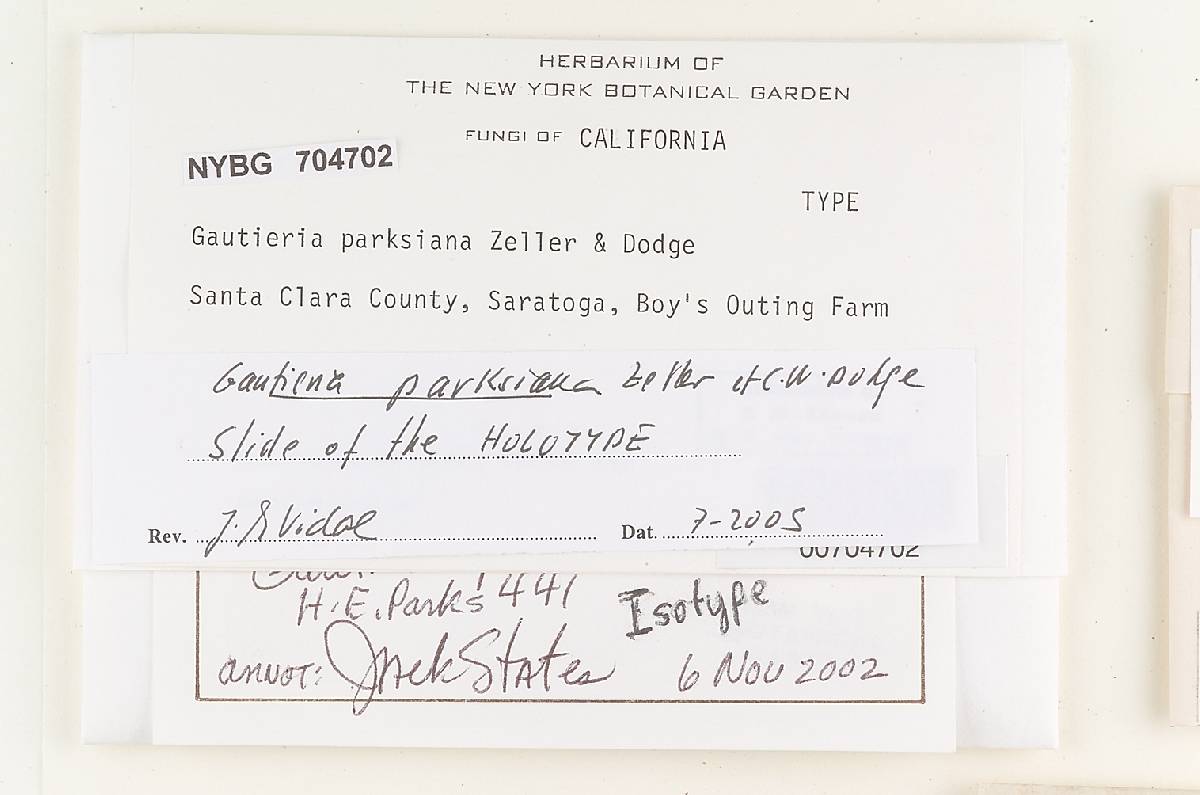 HERBARIUM OF
THE NEW YORK BOTANICAL GARDEN
FUNGI OF CALIFORNIA
NYBG 704702
TYPE
Gautieria parksiana Zeller & Dodge
Santa Clara County, Saratoga, Boy's Outing Farm
Gautieria parksiana Zeller et C.W. Dodge
Slide of the HOLOTYPE
Rev. J. Vidal Dat. 7-2005
00704702
H.E. Parks 441 Isotype
annot: Jack States 6 Nov 2002